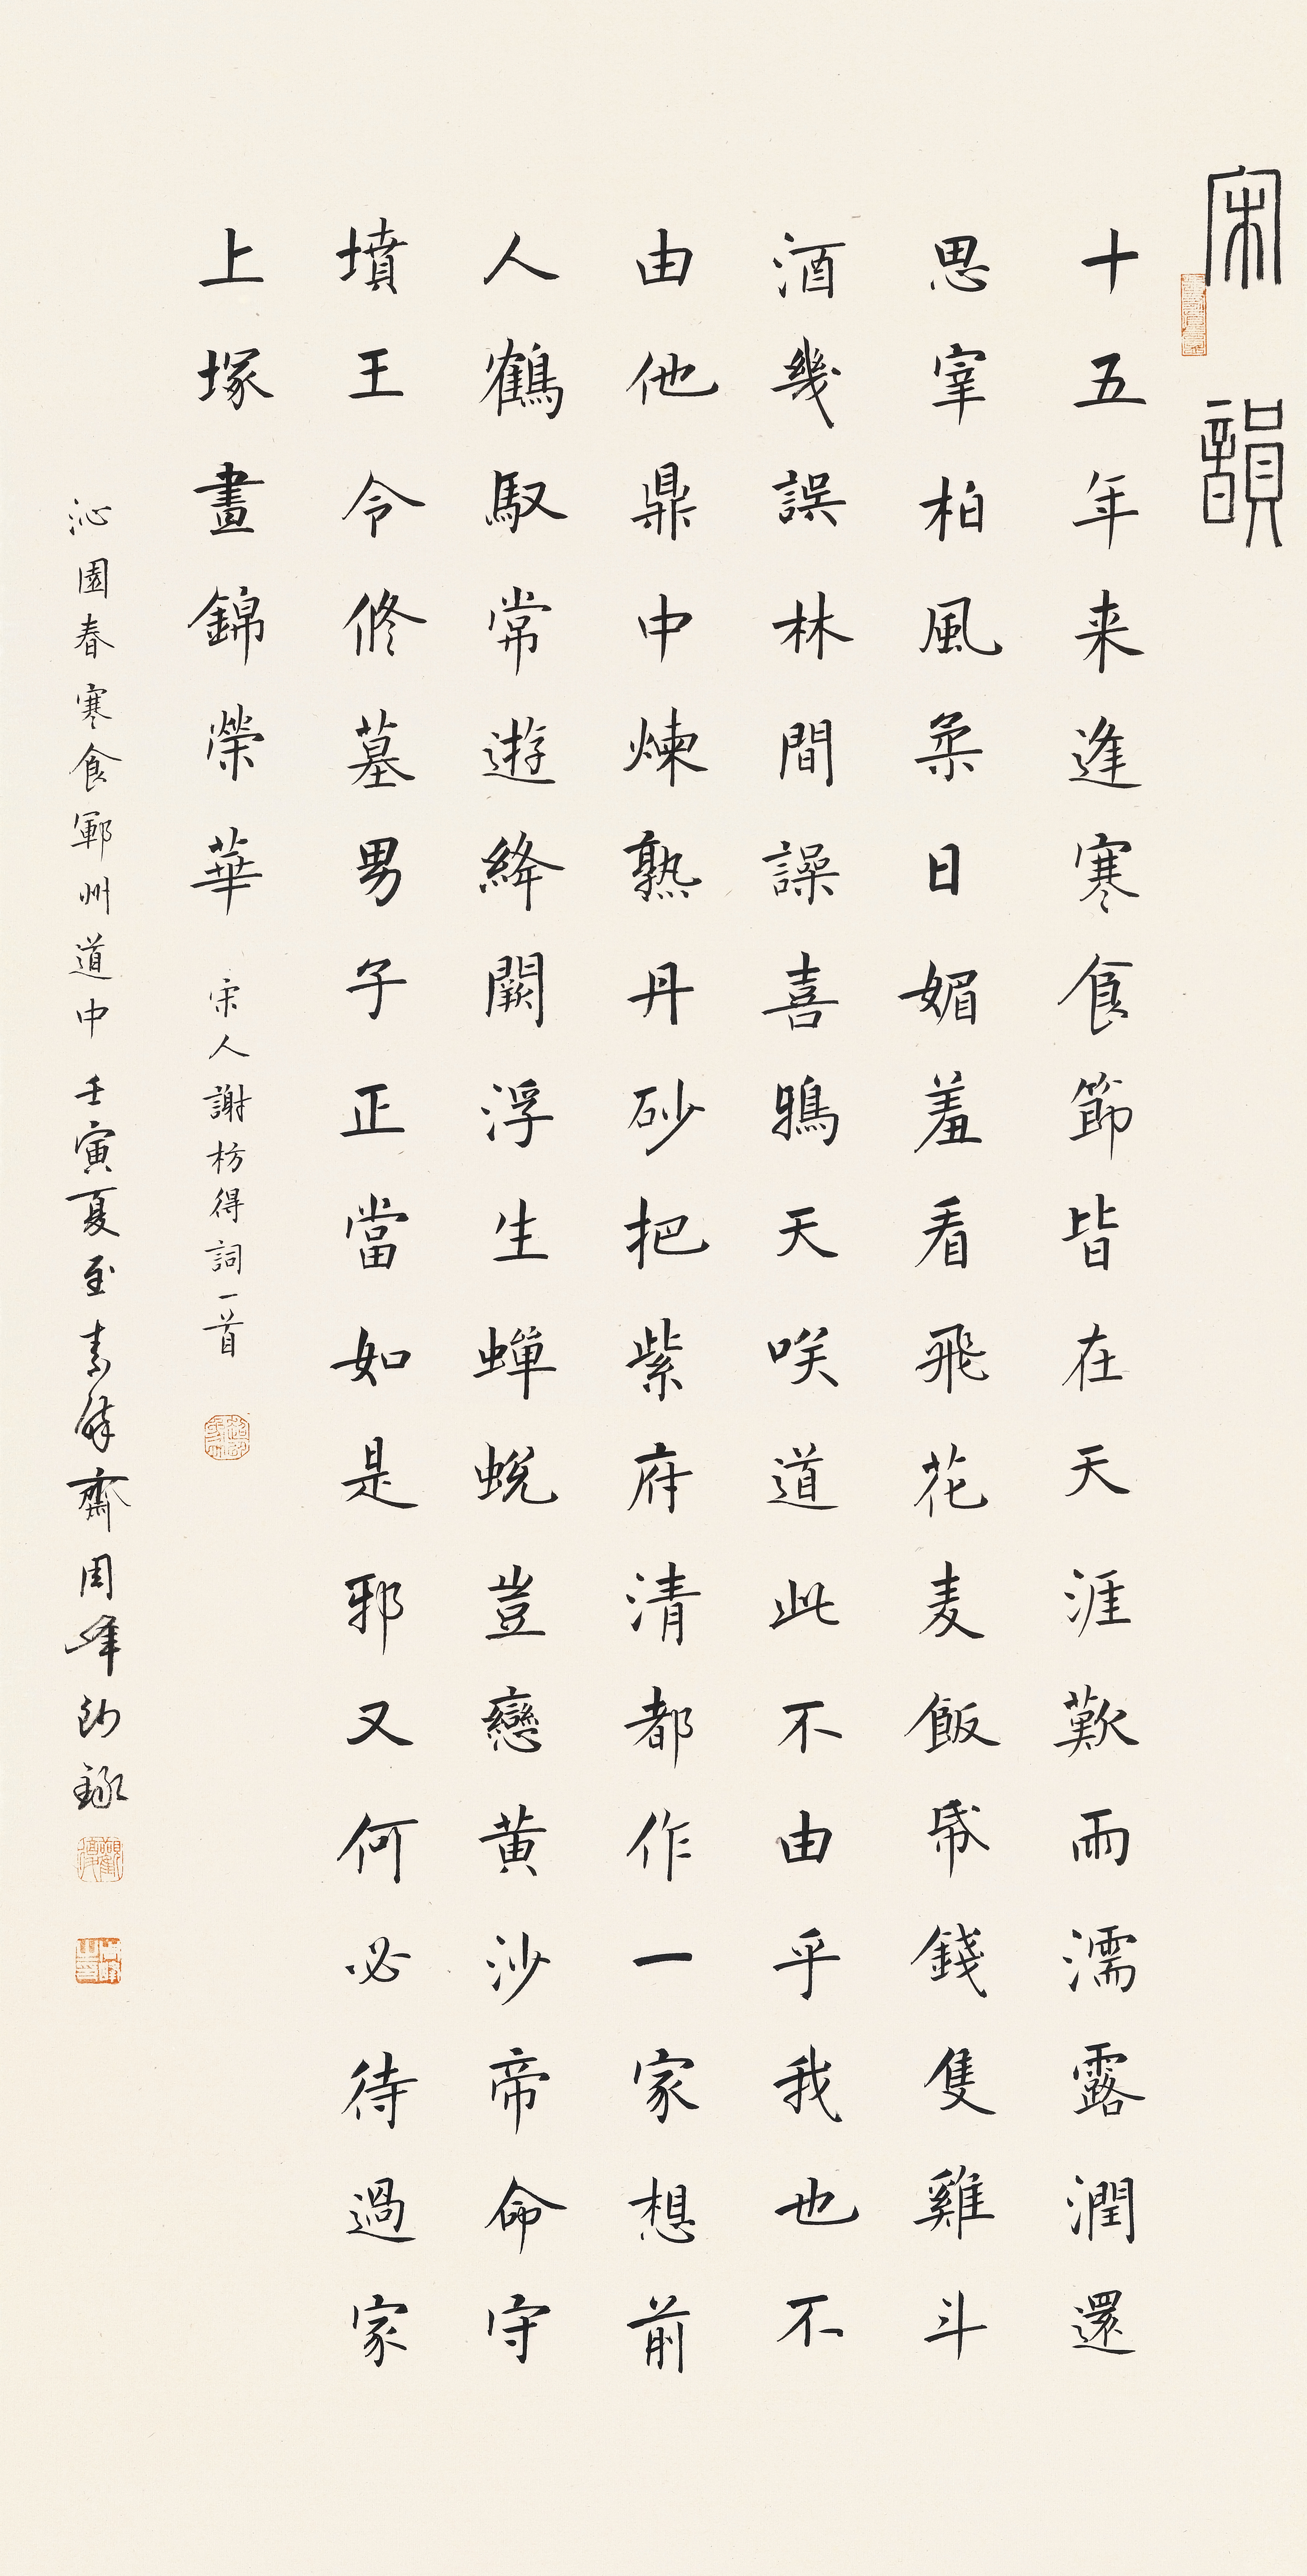 宋韻
十五年来逢寒食節皆在天涯歎雨濡露潤還
思宰柏風柔日媚羞看飛花麦飯帋錢隻雞斗
酒幾誤林間譟喜鴉天咲道此不由乎我也不
由他鼎中煉熟丹砂把紫府清都作一家想前
人鶴馭常遊絳闕浮生蟬蛻豈戀黄沙帝命守
墳王令修墓男子正當如是邪又何必待過家
上塚晝錦榮華 宋人謝枋得詞一首
沁園春寒食鄆州道中 壬寅夏至素餘齋周峰敬錄